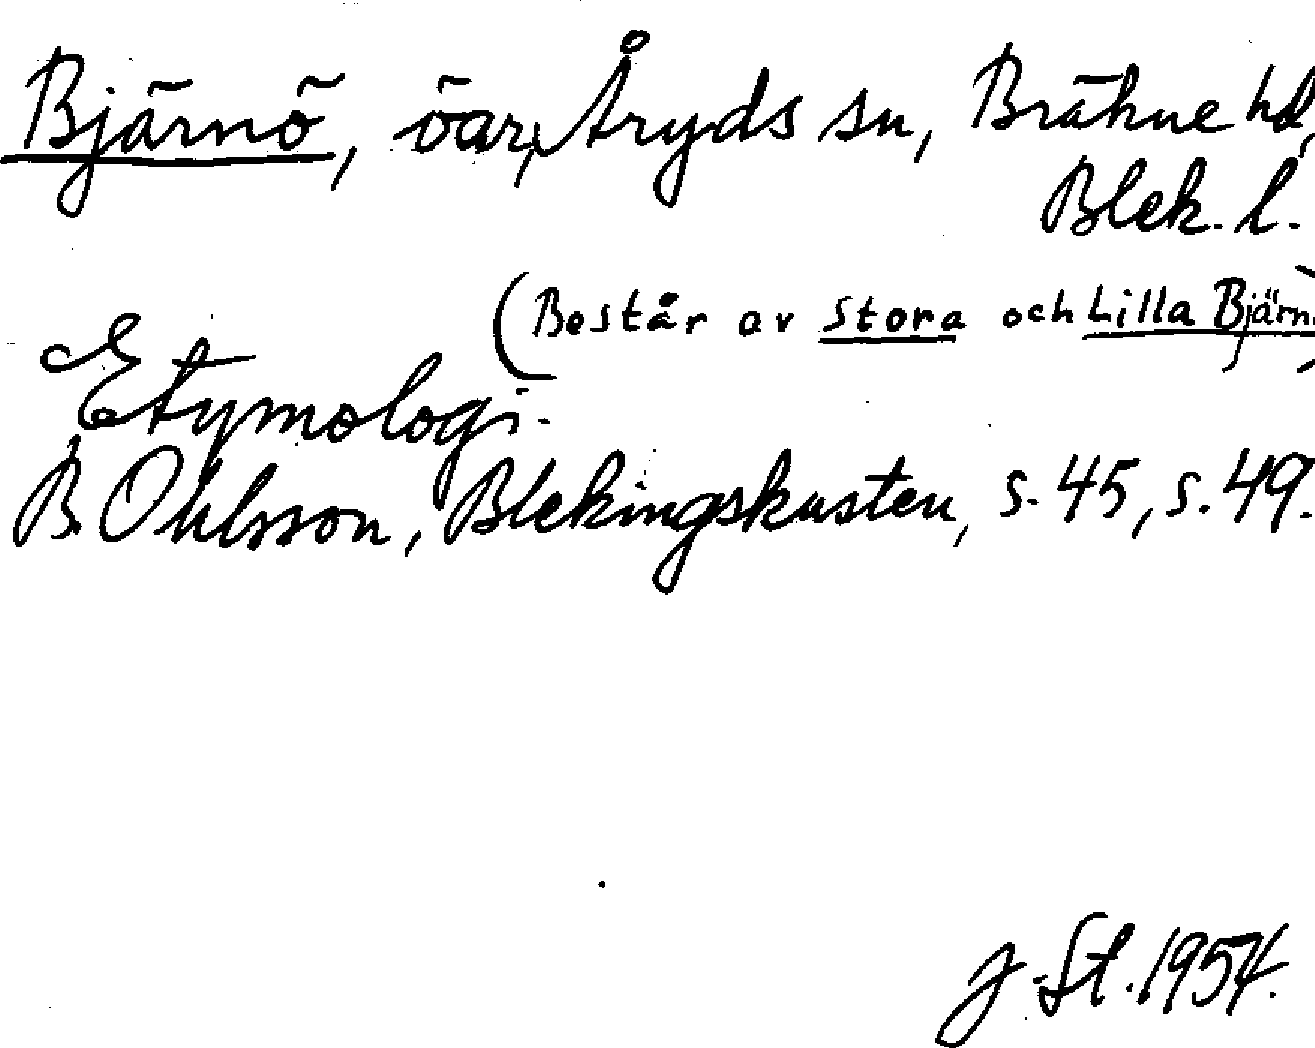 Bjärnö, öar, Åryds sn, Bräkne hd,
Blek. l.
(Består av Stora och Lilla Bjärn
Etymologi.
B Ohlsson, Blekingskusten, s. 45, s. 49.
J. St. 1954.